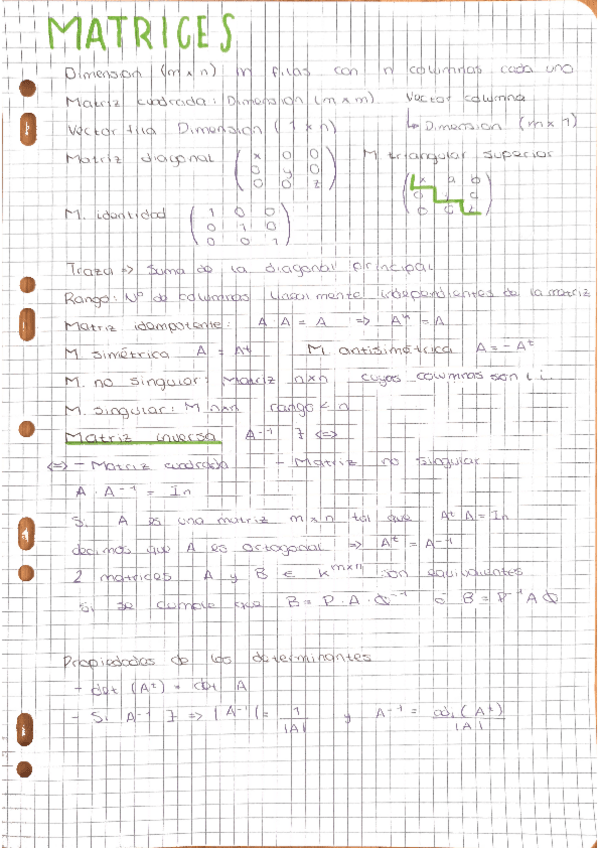 MATRICES
Dimension (m x n) m filas con n columnas cada una
Matriz cuadrada: Dimension (m x m) Vector columna
Vector fila Dimension (1 x n) ↳ Dimension (m x 1)
Matriz diagonal ( x 0 0 M. triangular superior
0 y 0
0 0 z )
M. identidad ( 1 0 0
0 1 0
0 0 1 )
Traza => Suma de la diagonal principal
Rango: Nº de columnas linealmente independientes de la matriz
Matriz idempotente: A · A = A => Aⁿ = A
M simétrica A = Aᵗ M. antisimétrica A = - Aᵗ
M. no singular: Matriz n x n cuyas columnas son l.i.
M. singular: M n x n rango < n
Matriz inversa A⁻¹ ∃ <=>
<=> - Matriz cuadrada - Matriz no singular
A · A⁻¹ = In
Si A es una matriz m x n tal que Aᵗ A = In
decimos que A es ortogonal => Aᵗ = A⁻¹
2 matrices A y B ∈ K^mxn son equivalentes
si se cumple que B = P · A · Q⁻¹ ó B = P⁻¹ A Q
Propiedades de los determinantes
- det (Aᵗ) = det A
- Si A⁻¹ ∃ => |A⁻¹| = 1/|A| y A⁻¹ = adj (Aᵗ)/|A|